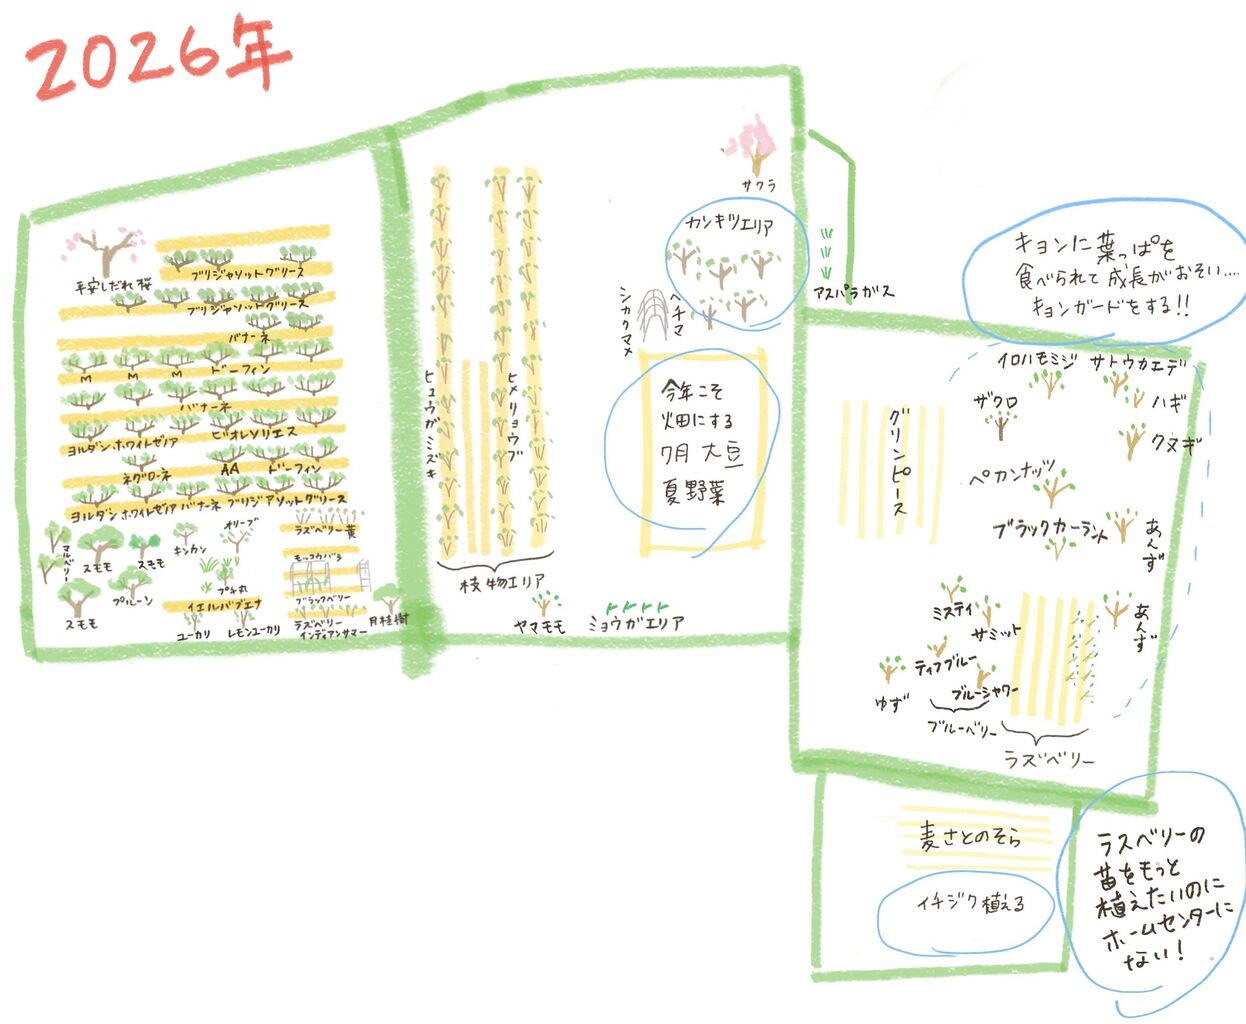 2026年
平安しだれ桜
ブリジャソットグリース
ブリジャソットグリース
バナーネ
M
M
M
ドーフィン
バナーネ
ヨルダン
ホワイトゼノア
ビオレソリエス
ネグローネ
AA
ドーフィン
ヨルダン
ホワイトゼノア
バナーネ
ブリジアソットグリース
マルベリー
スモモ
スモモ
キンカン
オリーブ
ラズベリー黄
モッコウバラ
プルーン
プチ丸
ブラックベリー
スモモ
イエルバブエナ
ユーカリ
レモンユーカリ
ラズベリー
インディアンサマー
月桂樹
ヒュウガミズキ
ヒメリョウブ
枝物エリア
ヤマモモ
ミョウガエリア
サクラ
カンキツエリア
シカクマメ
ヘチマ
今年こそ
畑にする
7月 大豆
夏野菜
アスパラガス
キョンに葉っぱを
食べられて成長がおそい....
キョンガードをする!!
イロハモミジ
サトウカエデ
ザクロ
ハギ
クヌギ
グリンピース
ペカンナッツ
ブラックカーラント
あんず
あんず
ミスティ
サミット
ティフブルー
ブルーシャワー
ゆず
ブルーベリー
ラズベリー
麦さとのそら
イチジク植える
ラズベリーの
苗をもっと
植えたいのに
ホームセンターに
ない!